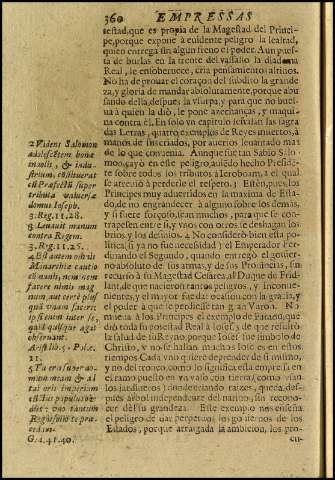 360 EMPRESSAS
testad, que es propia de la Magestad del Princi-
pe, porque expone à evidente peligro la lealtad,
quien entrega sin algun freno el poder. Aun pues-
ta de burlas en la frente del vassallo la diadema
Real, le ensobervece, cria pensamientos altivos.
No ha de provar el coraçon del subdito la grande-
za, y gloria de mandar absolutamente, porque abu-
sando della, despues la vsurpa, y para que no buel-
va à quien la diò, le pone azechanças, y maqui-
na contra èl. En solo vn capitulo señalan las sagra-
das Letras, quatro exemplos de Reyes muertos, à
manos de sus criados, por averlos levantado mas
de lo que convenia. Aunque fue tan Sabio Salo-
mon, cayò en este peligro, aviendo hecho Presiden-
te sobre todos los tributos à Ieroboam, 2 el qual
se atreviò à perderle el respeto. 3 Estèn, pues, los
Principes muy advertidos en la maxima de Esta-
do, de no engrandecer à alguno sobre los demàs,
y si fuere forçoso, sean muchos, para que se con-
trapesen entre sì, y vnos con otros se deshagan los
brios, y los desinios. 4 No considerò bien esta po-
litica (si ya no fue necessidad) el Emperador Fer-
dinando el Segundo, quando entregò el govier-
no absoluto de sus armas, y de sus Provincias, sin
recurso à su Magestad Cesarea, al Duque de Frid-
lant, de que nacieron tantos peligros, y inconve-
nientes, y el mayor fue dar ocasion con la gracia, y
el poder à que se perdiesse tan gran Varon. No
mueva à los Principes el exemplo de Faraòn, que
diò toda su potestad Real à Iosef, 5 de que resultò
la salud de su Reyno, porque Iosef fue simbolo de
Christo, y no se hallan muchos Iosefes en estos
tiempos. Cada vno quiere depender de sì mismo,
y no del tronco, como lo significa esta empresa en
el ramo puesto en vn vaso con tierra, como vsan
los jardineros, donde criando raizes, queda, des-
pues arbol independente del nativo, sin recono-
cer dèl su grandeza. Este exemplo nos enseña
el peligro de dar perpetuos los goviernos de los
Estados, porque arraygada la ambicion, los pro-
cu-
2 Videns Salomon
adolescentem bonæ
indolis, & indu-
strium, constituerat
eum Præfectum super
tributa vniversæ
domus Ioseph.
3. Reg. 11. 28.
3 Levavit manum
contra Regem.
3. Reg. 11. 26.
4 Est autem omnis
Monarchiæ cautio
communis, neminem
facere nimis mag-
num, aut certe plus
quã vnum facere:
ipsi enim inter se,
quid quisque agat
observant.
Aristo. lib. 5. Pol. c.
11.
5 Tu eris super do-
mum meam, & ad
tui oris imperium
cunctus populus obe-
diet: vno tantum
Regni solio te præ-
cedam.
G. 4. 41. 40.